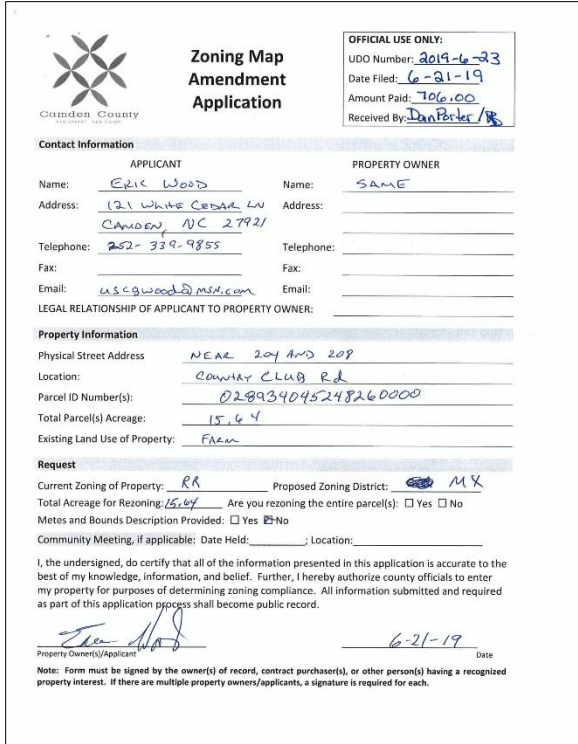 Camden County
Zoning Map
Amendment
Application
OFFICIAL USE ONLY:
UDO Number: 2019-6-23
Date Filed: 6-21-19
Amount Paid: 706.00
Received By: Dan Porter /
Contact Information
APPLICANT
Name: ERIC WOOD
Address: 121 WHITE CEDAR LN
CAMDEN, NC 27921
Telephone: 252-339-9855
Fax:
Email: uscgwood@msn.com
PROPERTY OWNER
Name: SAME
Address:
Telephone:
Fax:
Email:
LEGAL RELATIONSHIP OF APPLICANT TO PROPERTY OWNER:
Property Information
Physical Street Address NEAR 204 AND 208
Location: COUNTRY CLUB Rd
Parcel ID Number(s): 028934045248260000
Total Parcel(s) Acreage: 15.64
Existing Land Use of Property: FARM
Request
Current Zoning of Property: RR Proposed Zoning District: MX
Total Acreage for Rezoning: 15.64 Are you rezoning the entire parcel(s): ☐ Yes ☐ No
Metes and Bounds Description Provided: ☐ Yes ☒ No
Community Meeting, if applicable: Date Held: ; Location:
I, the undersigned, do certify that all of the information presented in this application is accurate to the
best of my knowledge, information, and belief. Further, I hereby authorize county officials to enter
my property for purposes of determining zoning compliance. All information submitted and required
as part of this application process shall become public record.
Eric Wood 6-21-19
Property Owner(s)/Applicant Date
Note: Form must be signed by the owner(s) of record, contract purchaser(s), or other person(s) having a recognized
property interest. If there are multiple property owners/applicants, a signature is required for each.